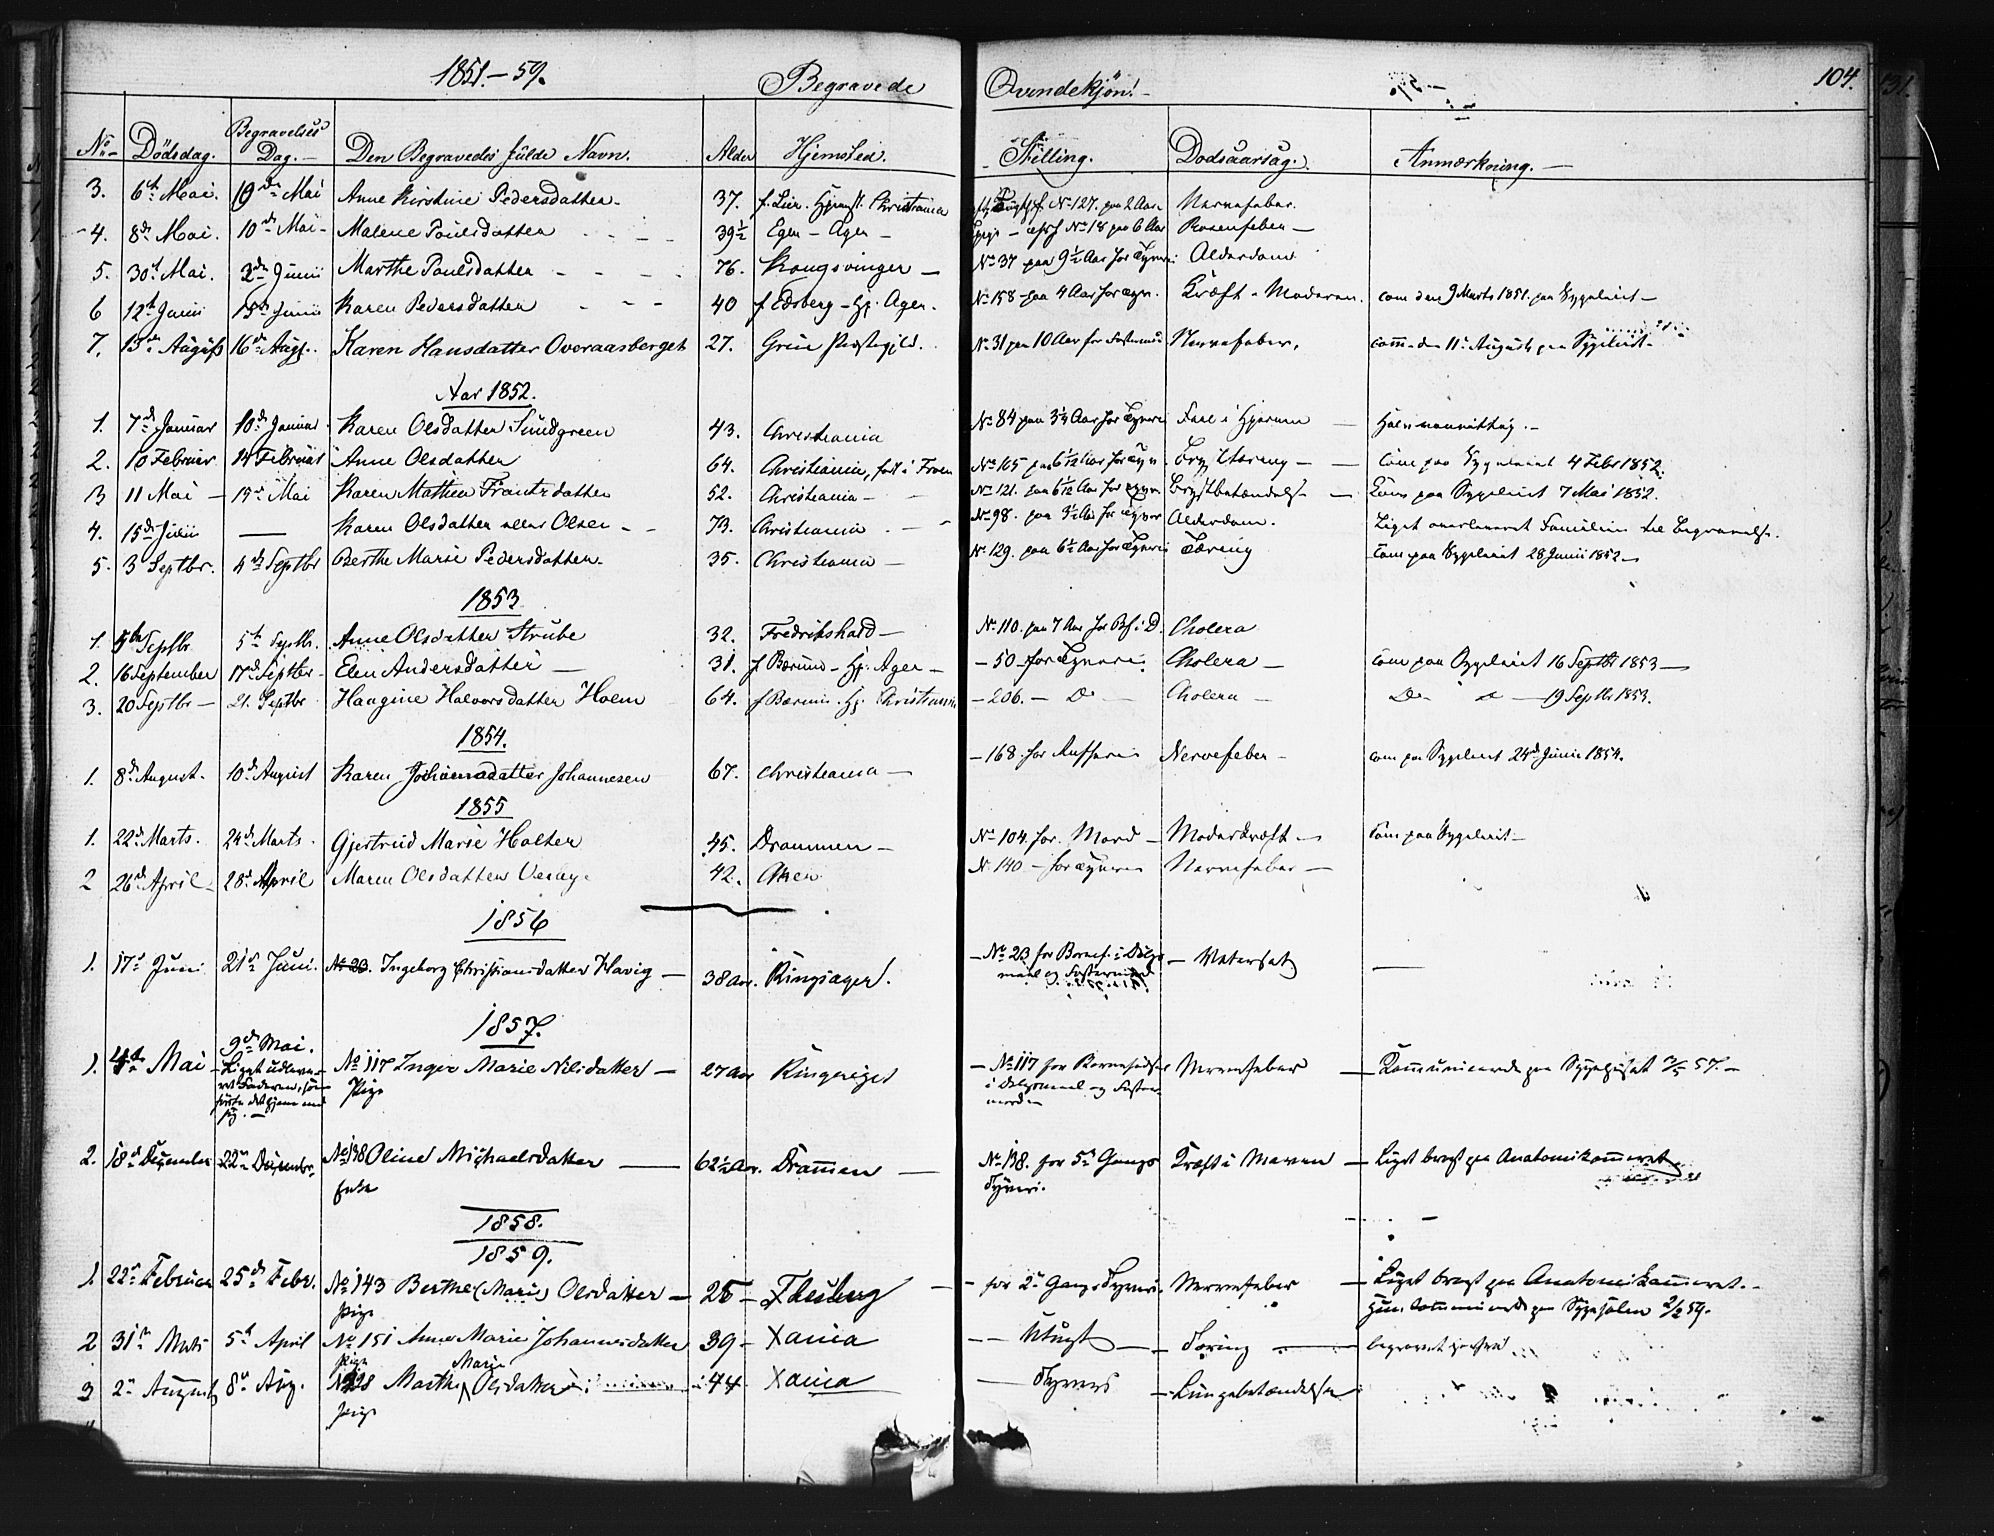 1851-59. Begravede Qvindekjön! 104. 131.
No Dödsdag. Begravelses Dag. Den Begravedes fulde Navn. Alder Hjemsted. Stilling. Dodsaarsag. Anmærkning.
3. 6te Mai. 10de Mai Anne Kirstine Pedersdatter 37. f. Lier. Hjemst. Christiania No 127. paa 2 Aar Nervefeber.
4. 8de Mai. 10de Mai Malene Poulsdatter 39½ Eger - Ager No 18 paa 6 Aar Rosenfeber
5. 30te Mai. 2den Junii Marthe Poulsdatter 76. Kongsvinger No 37 paa 9½ Aar for Tyveri Alderdom
6 12te Junii 15de Junii Karen Pedersdatter 40 f. Edsberg - Hj. Ager. No 158 paa 4 Aar for Tyv. Kræft i Moderen. com den 9 Marts 1851. paa Sygeleiet
7. 13de August 16de Augst. Karen Hansdatter Overaasberget 27. Grue Præstegjeld. No 31 paa 10 Aar for Fostermord Nervefeber. com. den 11te August paa Sygeleiet
Aar 1852.
1. 7de Januar 10de Januar Karen Olsdatter Sundgreen 43. Christiania No 84 paa 3¼ Aar for Tyveri Feil i Hjernen
2. 10 Februar 14 Februar Anne Olsdatter 64. Christiania, født i No 165 paa 6 1/12 Aar for Tyv. Brysttæring Com paa Sygeleiet 4 Febr 1852.
3 11 Mai 15de Mai Karen Mathea Frantzdatter 52. Christiania No 121. paa 6 1/12 Aar for Tyveri Brystbetændelse Com paa Sygeleiet 7 Mai 1852.
4. 15de Juni Karen Olsdatter eller Olsen 73. Christiania No 98. paa 3½ Aar for Tyveri Alderdom. Liget overleveret Familien til Begravelse.
5. 3 Septbr. 4de Septbr Berthe Marie Pedersdatter. 35. Christiania No 129. paa 6½ Aar for Tyveri Tæring Com paa Sygeleiet 28 Junii 1852
1853
1. 4de Septbr 5te Septbr. Anne Olsdatter Strube 32. Fredrikshald No 110. paa 7 Aar for Bf. i D. Cholera
2. 16 September 17de Septbr Elen Andersdatter 31. f Bærum - Hj. Ager 50 for Tyveri Cholera Com paa Sygeleiet 16 Septbr 1853
3. 20 Septbr 21. Septbr Haagine Halvorsdatter Holm 64. f Bærum. Hj. Christiania 206. Do Cholera Do 19 Septbr 1853.
1854.
1. 8de August. 10de August Karen Johannesdatter Johannesen 67. Christiania 168. for Nervefeber com paa Sygeleiet 24de Junii 1854.
1855
1. 22de Marts. 24de Marts. Gjertrud Marie Holter 45. Drammen No 104. for Mord Moderkræft Com paa Sygeleiet
2 26de April 28de April Maren Olsdatter 42. Aker No 140 for Tyveri Nervefeber
1856
1. 17de Juni 21de Juni. No 23. Ingeborg Christiansdatter Havig 38 Aar. Ringsager. No 23 for Barnef. i Dølgsmaal og Fostermord Vatersot
1857.
1. 4de Mai 9de Mai. Liget udleveret Faderen, som førte det hjem med sig. No 117 Inger Marie Nilsdatter Pige 27 Aar Ringeriget No 117 for Barnefødsel i Dølgsmaal og Fostermord Nervefeber Kommunicerede paa Sygehuset 57.
2. 18de December 22de December. No 138 Oline Michaelsdatter Enke 62½ Aar. Drammen No 138. for 5te Gangs Tyveri. Kræft i Maven Liget bragt paa Anatomikammeret
1858.
1859.
1. 22de Februar 25de Febr. No 143 Berthe (Marie) Olsdatter Pige 28 for 2de Gangs Tyveri. Nervefeber Liget bragt paa Anatomikammeret.
Hun kommunicerede paa Sygesalen 59.
2 31te Marts 5te April No 151 Anne Marie Johannesdatter Pige 39 Xania Utugt Tæring
3 2de August 8de Aug. Marthe Marie Olsdatter Pige 44 Xania Tyveri Lungebetændelse